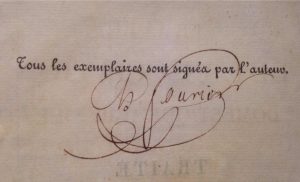 Tous les exemplaires sont signéa par l'auteur.
Courier
TRAITÉ